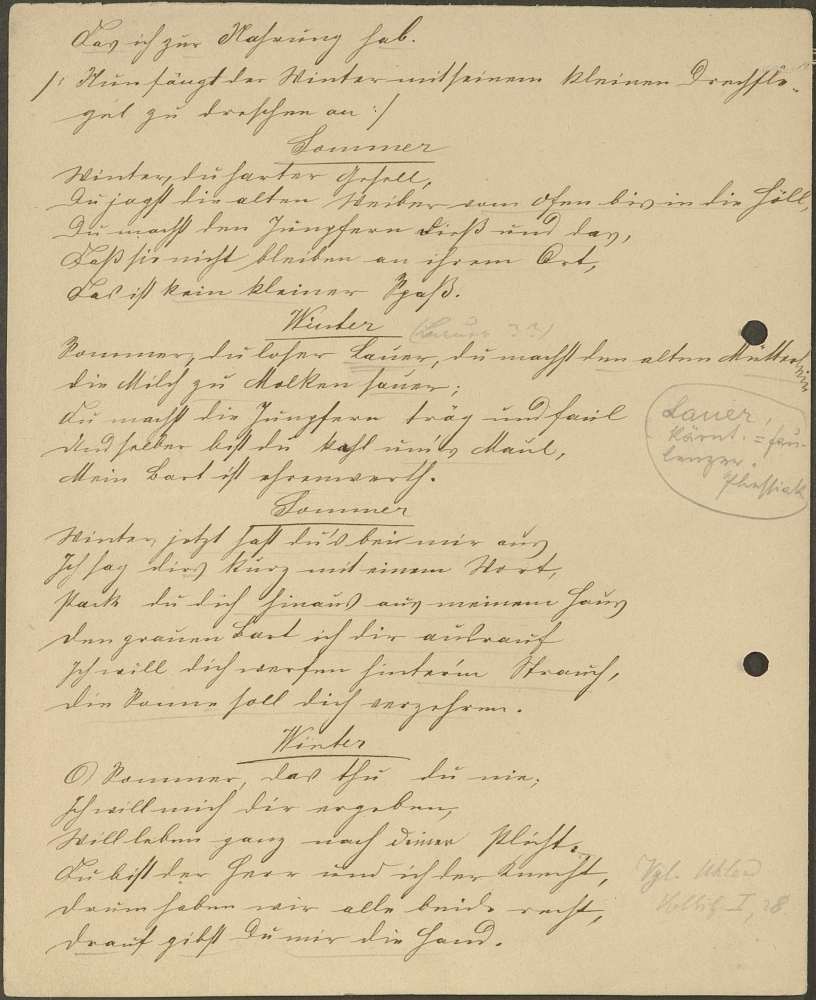 Das ich zur Nahrung hab.
/: Nun fängt der Winter mit seinem kleinen Drechfle-
gel zu dreschen an :/
Sommer
Winter, du harter Gesell,
Du jagst die alten Weiber vom Ofen bis in die Höll,
Du machst den Jungfern dieß und das,
Daß sie nicht bleiben an ihrem Ort,
Das ist kein kleiner Spaß.
Winter (Lauer ??)
Sommer, du loser Lauer, du machst den alten Mütterlein
die Milch zu Molken sauer;
Du machst die Jungfern träg und faul
Und selber bist du kahl um's Maul,
Mein Bart ist ehrenwerth.
Lauer,
Kärnt. = fau-
lenzer.
Sommer
Winter, jetzt hast du's bei mir aus
Ich sag dirs kurz mit einem Wort,
Pack du dich hinaus aus meinem Haus
Den grauen Bart ich dir ausrauf
Ich will dich werfen hinter'm Strauch,
Die Sonne soll dich verzehren.
Winter
O Sommer, das thu du nie;
Ich will mich dir ergeben,
Will leben ganz nach deiner Pflicht.
Du bist der Herr und ich der Knecht,
Drum haben wir alle beide recht,
Drauf gibst Du mir die Hand.
Vgl. Uhland
Volksl. I, 28.